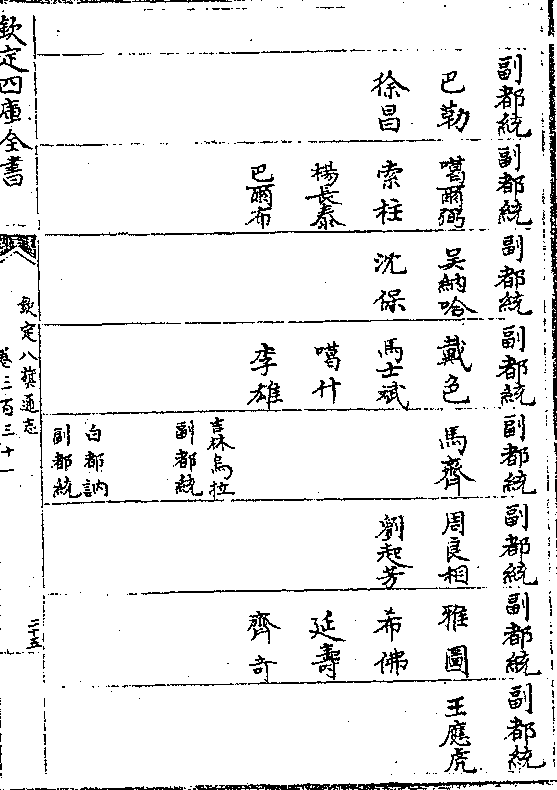 副都統
巴勒
徐昌
副都統
噶爾弼
索柱
楊長泰
巴爾布
副都統
吴納哈
沈保
副都統
戴色
馬士斌
噶什
李雄
副都統
馬齊
吉林烏拉
副都統
白都訥
副都統
副都統
周良相
劉起芳
副都統
雅圖
希佛
延壽
齊奇
副都統
王應虎
欽定四庫全書
欽定八旗通志
卷三百三十一